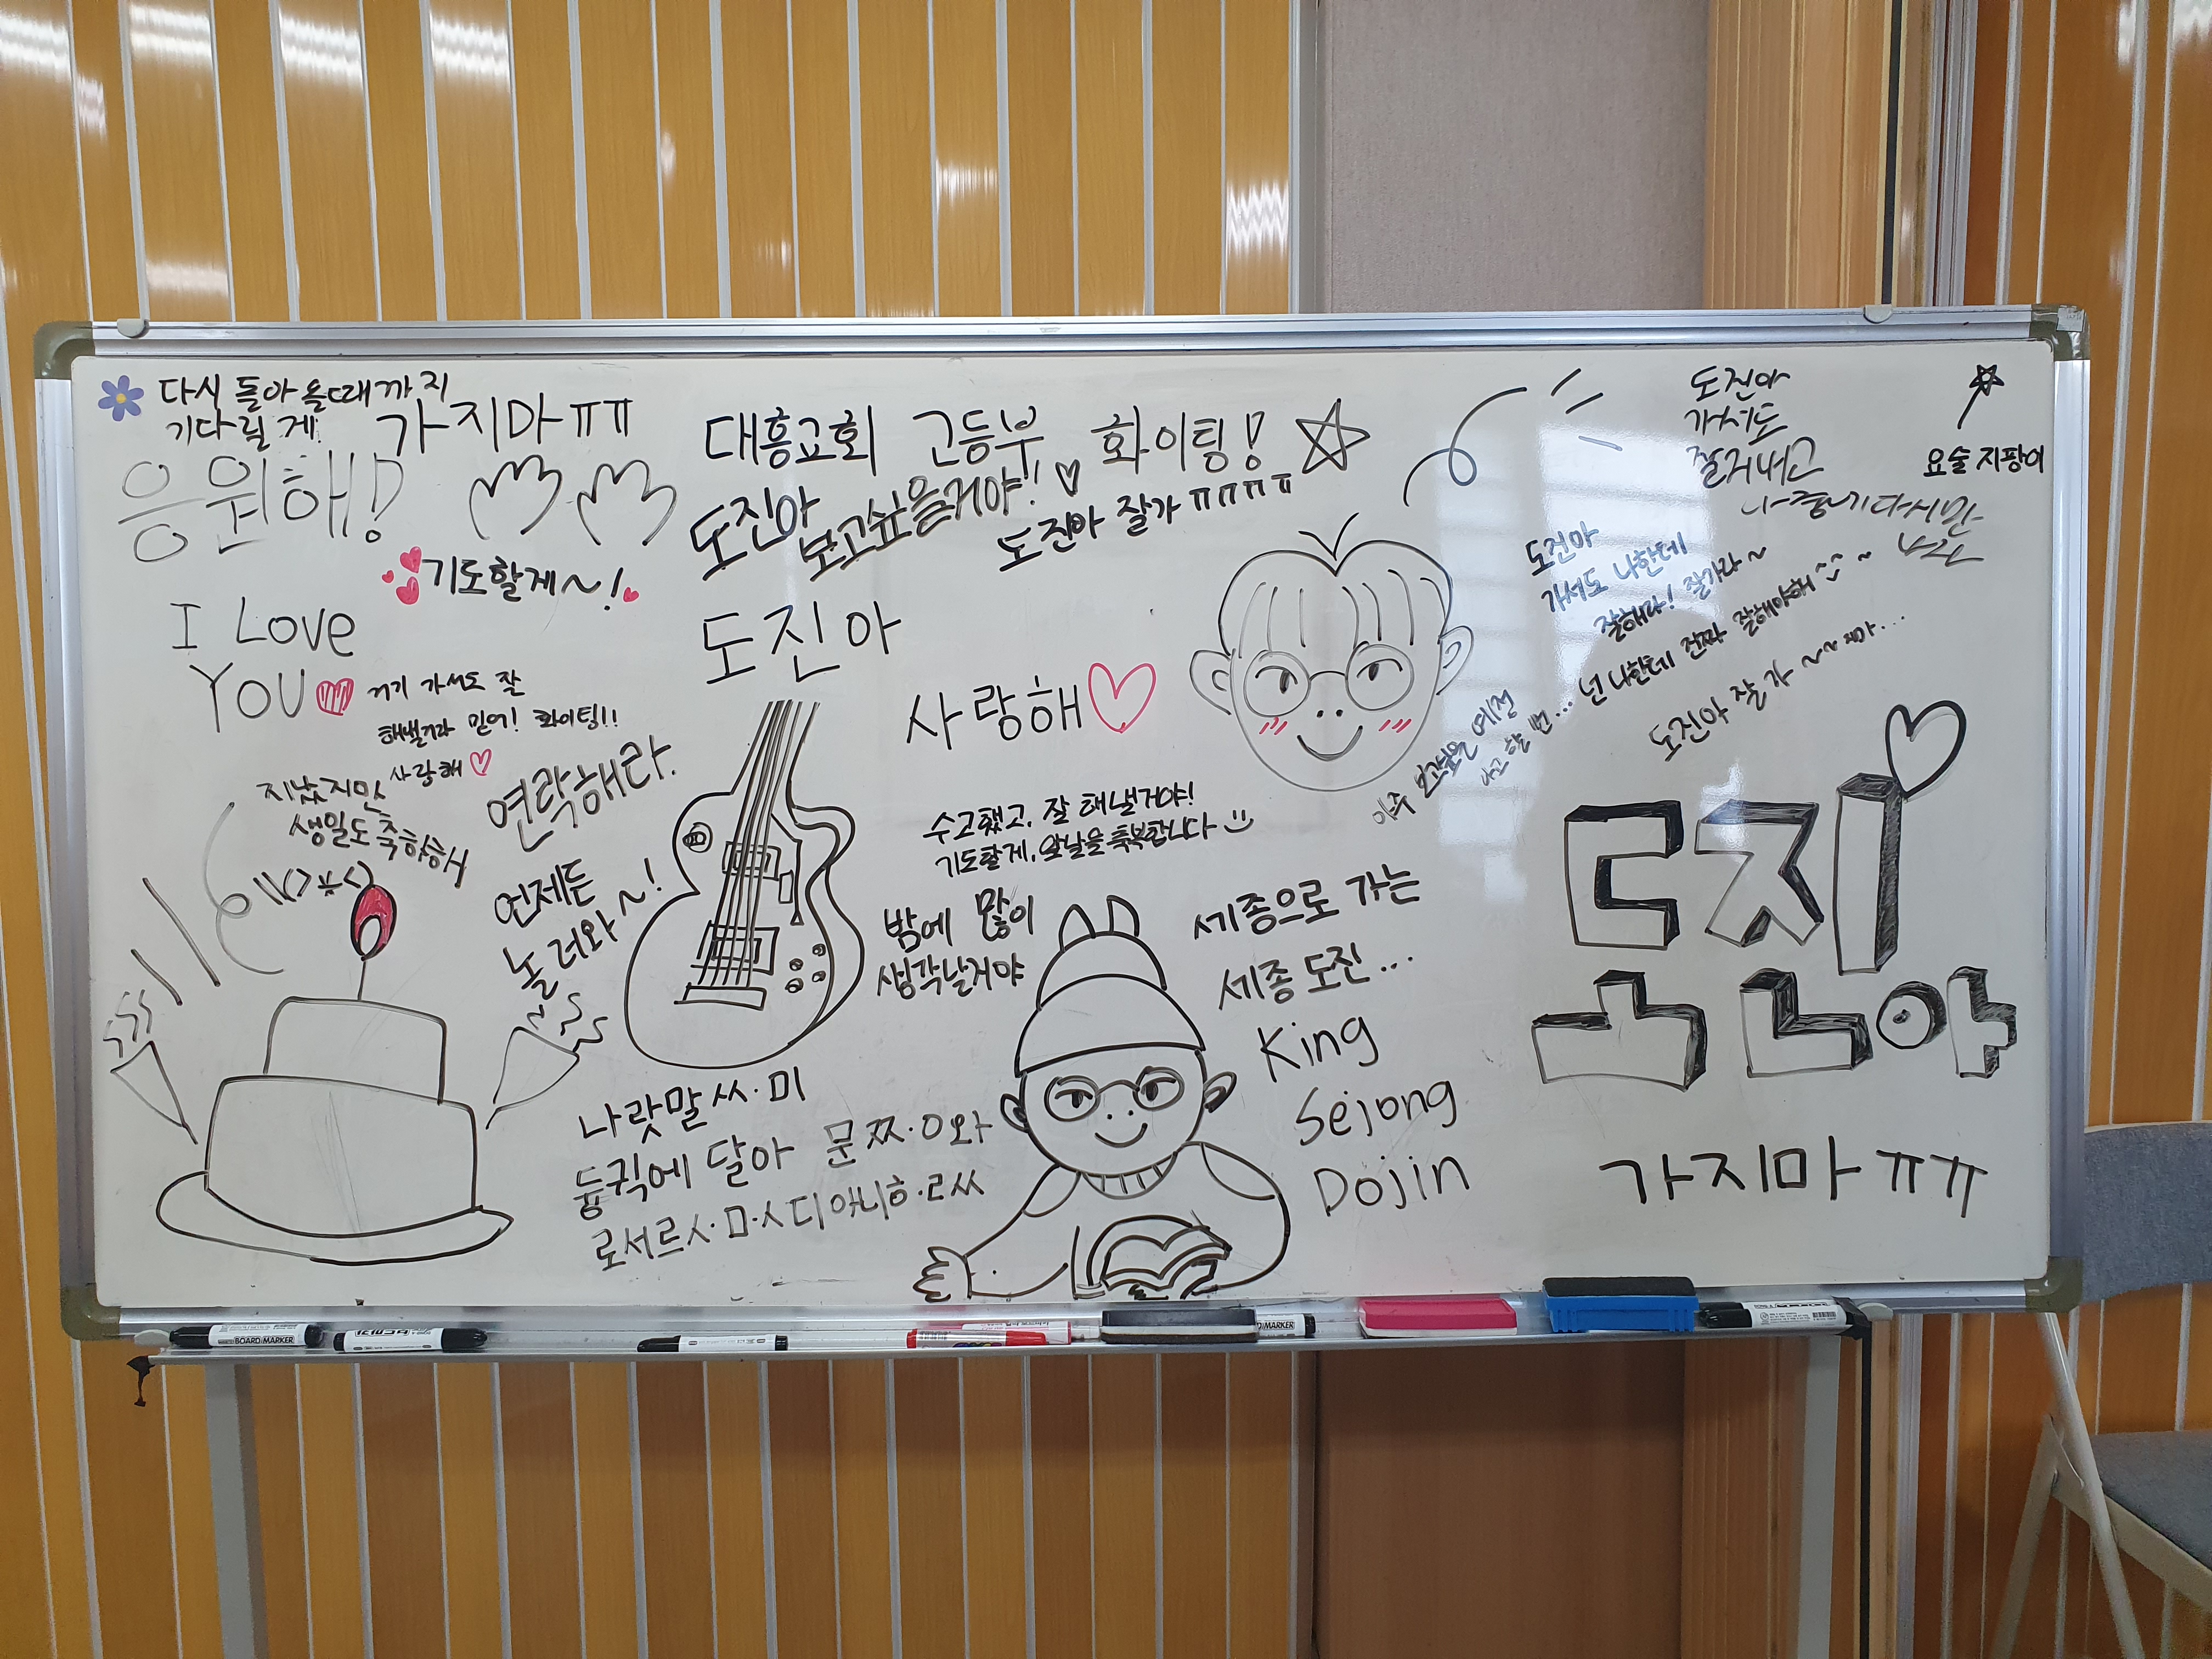 다시 돌아 올때까지
기다릴 게!
가지마ㅠㅠ
응원해!
기도할게~!
I Love
YOU
거기 가서도 잘
해낼거라 믿어! 화이팅!!
사랑해
지났지만
생일도 축하해
\\(>ㅊ<)
연락해라.
언제든
놀러와~!
대흥교회 고등부 화이팅!
도진아
보고싶을거야!
도진아 잘가 ㅠㅠㅠㅠ
도진아
사랑해
수고했고, 잘 해낼거야!
기도할게, 앞날을 축복합니다
밤에 많이
생각날거야
세종으로 가는
세종 도진...
King
Sejong
Dojin
나랏말ㅆ·미
듕귁에 달아 문ㅉ·ㅇ와
로서르ㅅ·ㅁ·ㅅ디 아니ㅎ·ㄹㅆ
도진아
가서도
잘지내고
요술 지팡이
도진아
가서도 나한테
잘해라! 잘가라~
넌 나한테 진짜 잘해야해^^~
도진아 잘 가 ~~
도지
고노야
가지마 ㅠㅠ
BOARD MARKER